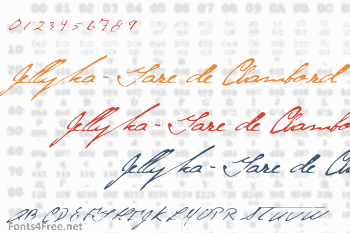 0123456789
Jellyka - Gare de Chambord
Jellyka - Gare de Chambo
Jellyka - Gare de Ch
ABCDEFGHIJKLMNOPR STUVW
Fonts4Free.net